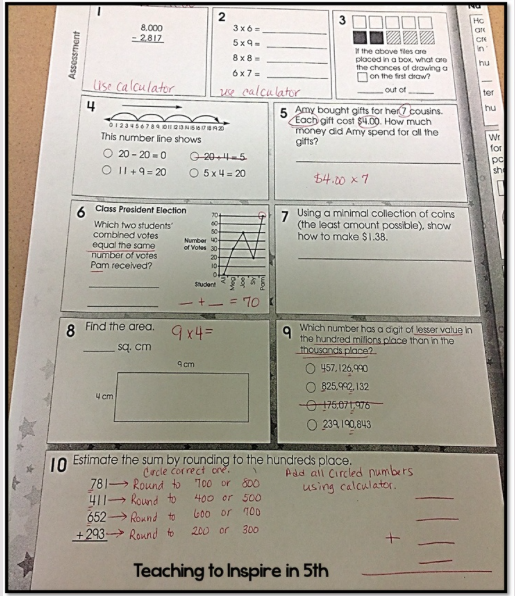 Assessment
1
8,000
- 2,817
use calculator
2
3 x 6 =
5 x 9 =
8 x 8 =
6 x 7 =
use calculator
3
If the above tiles are
placed in a box, what are
the chances of drawing a
on the first draw?
out of
4
0 1 2 3 4 5 6 7 8 9 10 11 12 13 14 15 16 17 18 19 20
This number line shows
20 - 20 = 0
20 ÷ 4 = 5
11 + 9 = 20
5 x 4 = 20
5 Amy bought gifts for her 7 cousins.
Each gift cost $4.00. How much
money did Amy spend for all the
gifts?
$4.00 x 7
6 Class President Election
Which two students'
combined votes
equal the same
number of votes
Pam received?
Number
of Votes
70
60
50
40
30
20
10
0
Al
Meg
Joe
Sly
Pam
Student
_ + _ = 70
7 Using a minimal collection of coins
(the least amount possible), show
how to make $1.38.
8 Find the area.
9x4=
sq. cm
9 cm
4 cm
9 Which number has a digit of lesser value in
the hundred millions place than in the
thousands place?
457,126,990
825,992,132
175,071,976
239,190,843
10 Estimate the sum by rounding to the hundreds place.
Circle correct one.
Add all circled numbers
using calculator.
781 → Round to 700 or 800
411 → Round to 400 or 500
652 → Round to 600 or 700
+ 293 → Round to 200 or 300
+
Teaching to Inspire in 5th
hu
ter
hu
Wr
for